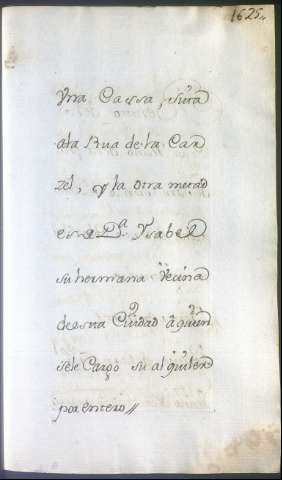 1625,,
Vna Cassa, sita
ala Rua de la Car
zel, y la otra mitad
es a D.ª Ysabel
su hermana Vecina
de esta Ciudad â quien
sele Cargò su alquiler
por entero //